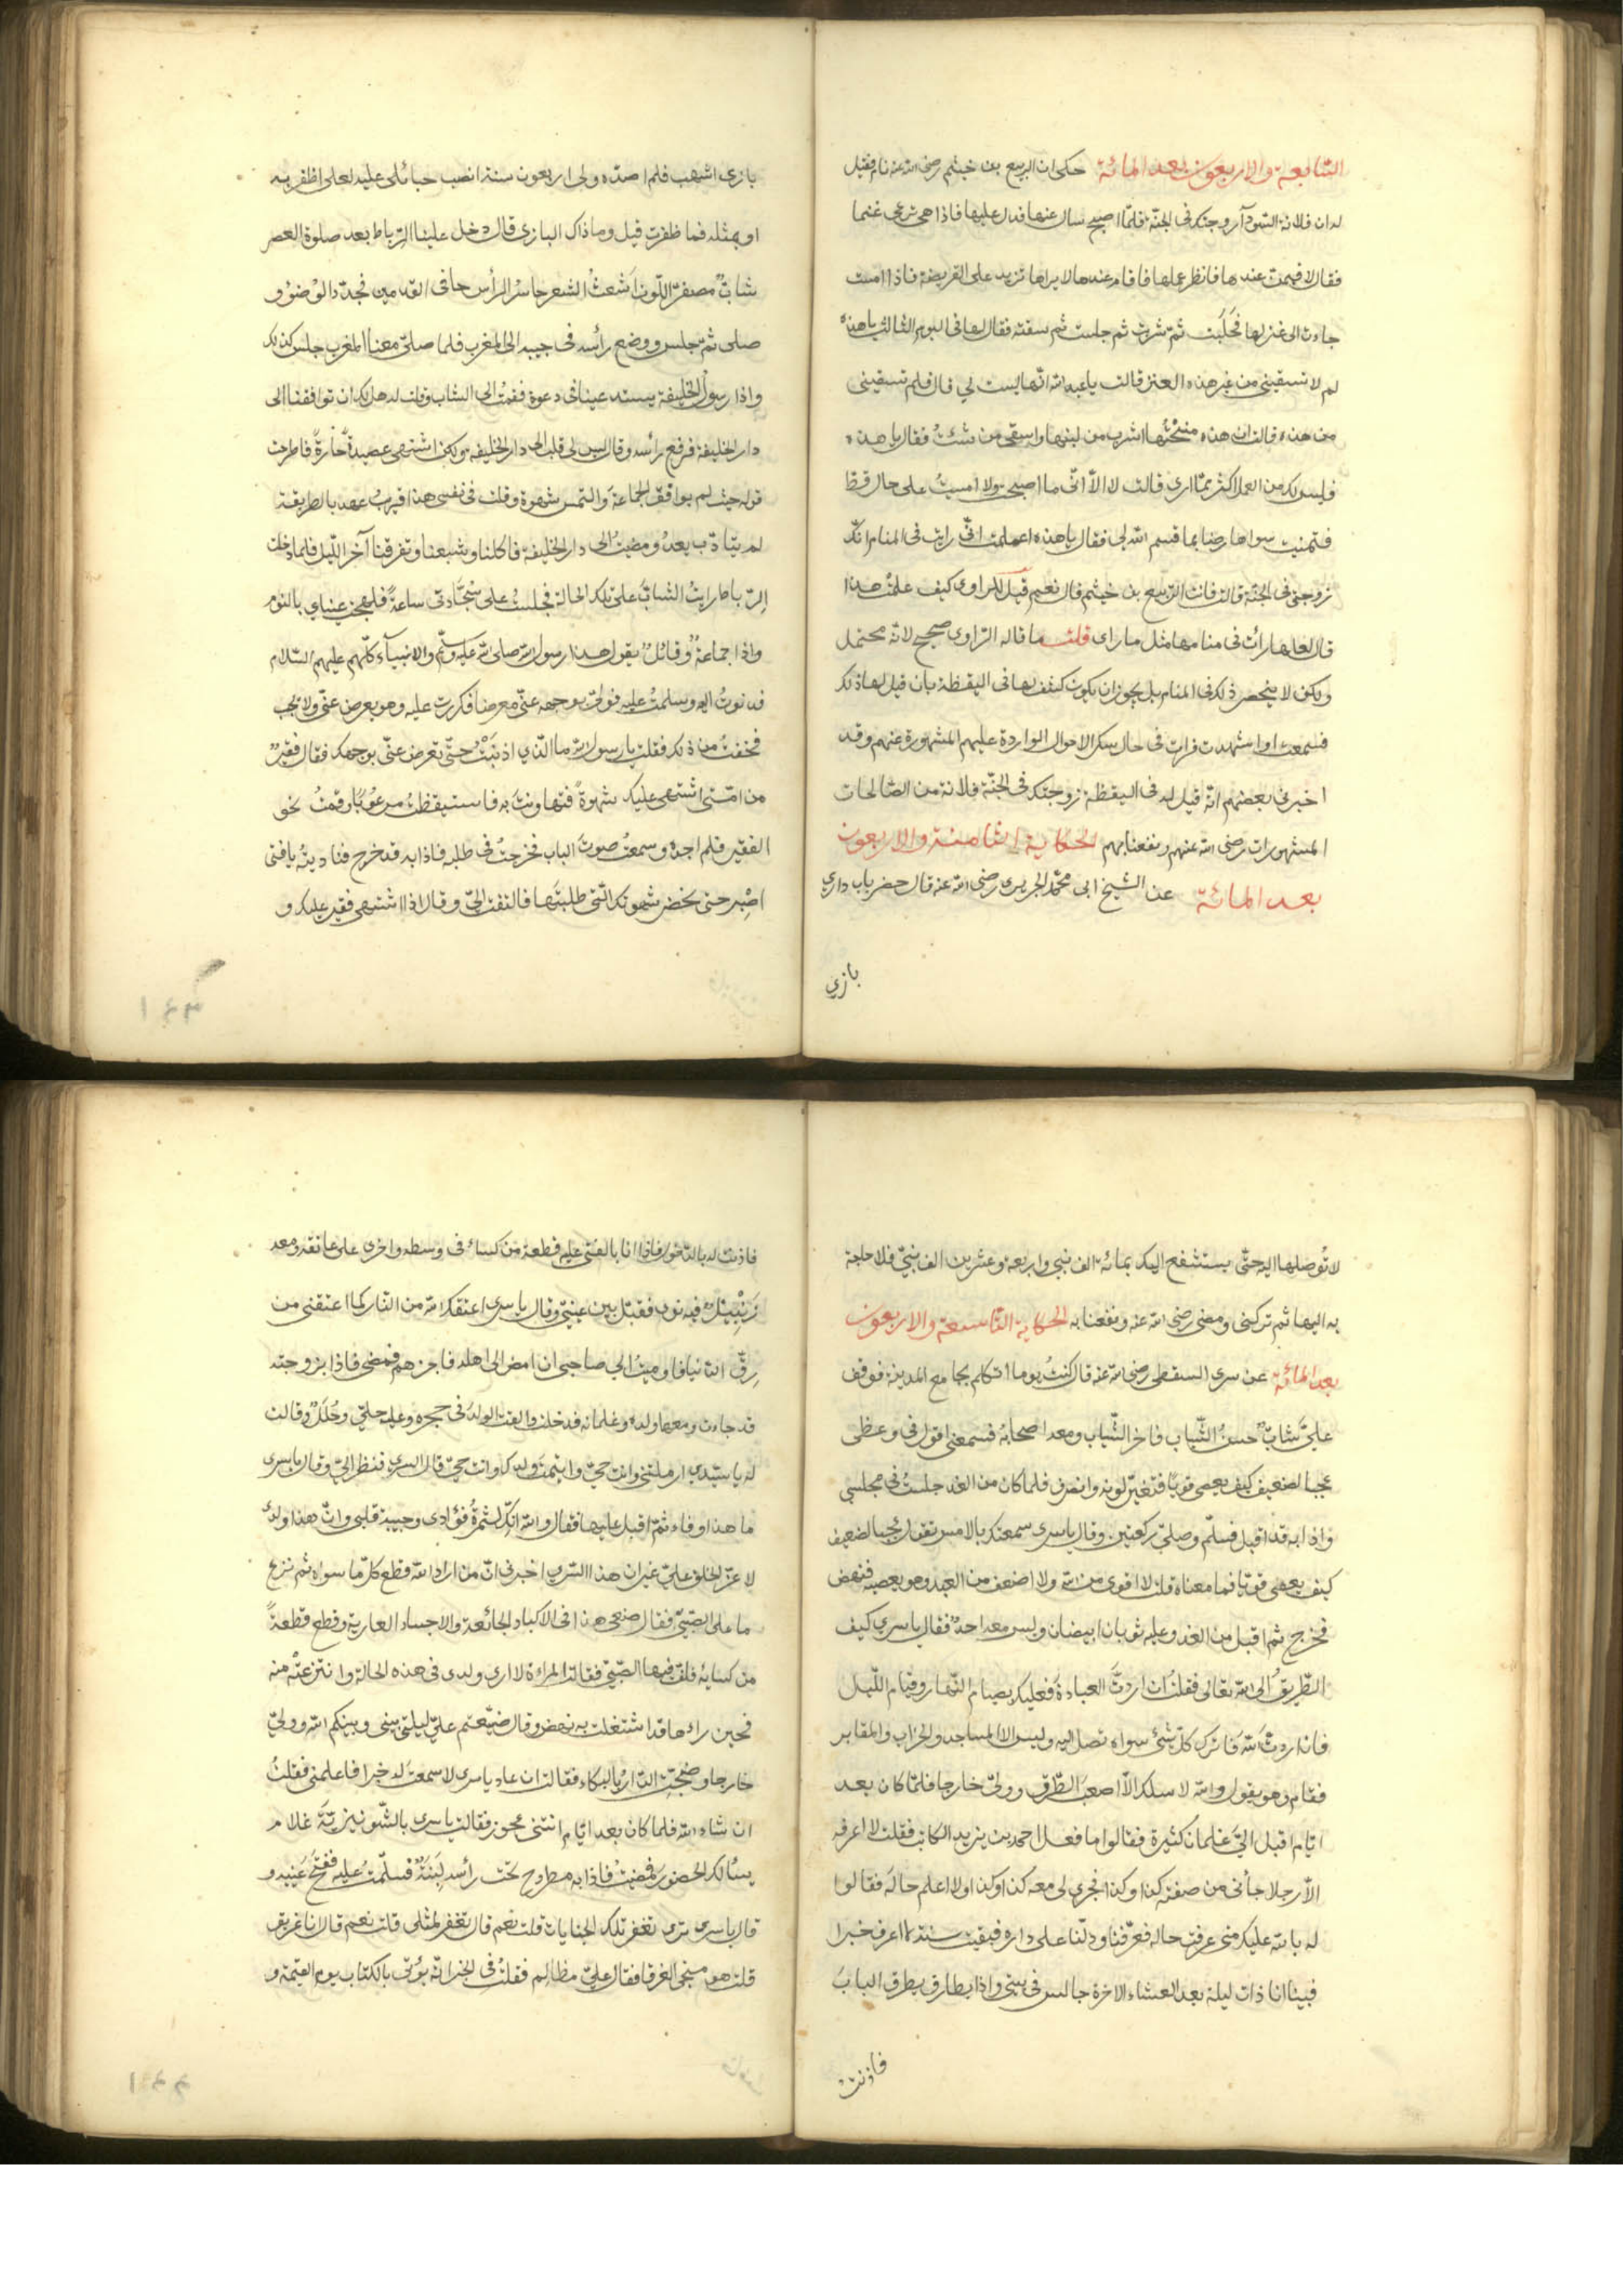 السابعة والاربعون بعد المائة حكى ان الربيع بن خيثم رضى الله عنه نام فقيل
له ان فلانة السودآء زوجتك فى الجنة فلمّا اصبح سال عنها فدل عليها فاذا هى ترعى غنما
فقال لاقيمن عندها فانظر عملها فاقام عندها لا يراها تزيد على الفريضة فاذا امست
جاءت الى عنز لها فحلبت ثمّ شربت ثم حلبت ثم سقته فقال لها فى اليوم الثالث يا هذه
لم لا تسقينى من غير هذه العنز قالت يا عبد الله انّها ليست لي قال فلم تسقينى
من هذه قالت ان هذه منحتُها اشرب من لبنها واسقى من شئتُ فقال يا هذه
فليس لك من العمل اكثر ممّا ارى قالت لا الّا انّى ما اصبحت ولا امسيت على حال قط
فتمنيت سواها رضا بما قسم الله لى فقال يا هذه اعلمت انّى رايت فى المنام انك
زوجتى فى الجنّة قالت فانت الرّبيع بن خيثم قال نعم قيل للراوى كيف علمت هذا
قال لعلها رأت فى منامها مثل ما راى قلت ما قاله الرّاوى صحيح لانه محتمل
ولكن لا ينحصر ذلك فى المنام بل يجوز ان يكون كشف لها فى اليقظة بان قيل لها ذلك
فسمعت او اشهدت فرات فى حال سكر الاحوال الواردة عليهم المشهورة عنهم وقد
اخبرنى بعضهم انّه قيل له فى اليقظة زوجتك فى الجنّة فلانة من الصّالحات
المشهورات رضى الله عنهم ونفعنا بهم الحكاية الثامنة والاربعون
بعد المائة عن الشيخ ابى محمّد الجريرى رضى الله عنه قال حضر باب دارى
بازي
بازى اشهب فلم اصدّه ولى اربعون سنة انصب حبائلى عليه لعلى اظفر به
او بمثله فما ظفرت قيل وما ذاك البازى قال دخل علينا الرّباط بعد صلوة العصر
شابٌّ مصفرّ اللّون اشعثُ الشعر حاسر الرأس حافى القدمين فجدّد الوضوء و
صلى ثمّ جلس ووضع رأسه فى جيبه الى المغرب فلما صلىّ معنا المغرب جلس كذلك
واذا رسول الخليفة يستدعينا فى دعوة فقمتُ الى الشاب وقلت له هل لك ان توافقنا الى
دار الخليفة فرفع رأسه وقال ليس لى قلب الى دار الخليفة ولكن اشتهى عصيدةً حارةً فاطرحت
قوله حيث لم يوافق الجماعة والتمس شهوة وقلت فى نفسى هذا قريبُ عهد بالطريقة
لم يتادّب بعدُ ومضيتُ الى دار الخليفة فاكلنا وشبعنا وتفرقنا آخر اللّيل فلما دخلت
الرّباط رايتُ الشابَّ على تلك الحالة فجلستُ على سَجّادتى ساعةً فلهجن عيناى بالنوم
واذا جماعةٌ وقائلٌ يقول هذا رسول الله صلى الله عليه وسلّم والانبيآء كلّهم عليهم السّلام
فدنوتُ اليه وسلمتُ عليه فولىّ بوجهه عنّى معرضا فكررت عليه وهو يعرض عنّى ولا يجب
فخفتُ من ذلك فقلت يا رسول الله ما الّذي اذنبتُ حتّى تعرض عنّى بوجهك فقال فقيرٌ
من امّتى اشتهى عليك شهوةً فتهاونت به فاستيقظتُ مرعُوبًا وقمتُ نحو
الفقير فلم اجده وسمعتُ صوتَ الباب فخرجتُ فى طلبه فاذا به قد خرج فناديتُه يا فتى
اصبر حتى نحضر شهوتك الّتى طلبتَها فالتفت الىّ وقال اذا اشتهى فقير عليك و
١٤٣
لا تُوصلها اليه حتّى يستشفع اليك بمائة الف نبى واربعة وعشرين الف نبيّ فلا حاجة
به اليها ثم تركنى ومضى رضى الله عنه ونفعنا به الحكاية التّاسعة والاربعون
بعد المائة عن سرى السقطى رضى الله عنه قال كنتُ يوما اتكلم بجامع المدينة فوقف
علىّ شابٌّ حسنُ الشّباب فاخر الثّياب ومعه اصحابه فسمعنى اقول فى وعظى
عجبا لضعيف كيف يعصى قويًا فتغيّر لونه وانصرف فلما كان من الغد جلستُ فى مجلسي
واذا به قد اقبل فسلّم وصلىّ ركعتين وقال يا سرى سمعتك بالامس تقول عجبا لضعيف
كيف يعصى قويّا فما معناه قلت لا اقوى من الله ولا اضعف من العبد وهو يعصيه فنهض
فخرج ثم اقبل من الغد وعليه ثوبان ابيضان وليس معه احدٌ فقال يا سرى كيف
الطّريقُ الى الله تعالى فقلتُ ان اردتَّ العبادةَ فعليك بصيام النّهار وقيام اللّيل
فان اردتَ الله فاترك كلّ شئ سواه تصل اليه وليس الا المساجد والخراب والمقابر
فقام وهو يقول والله لا سلكت الّا اصعبَ الطّرق وولىّ خارجا فلمّا كان بعد
ايّام اقبل الىّ غلمان كثيرة فقالوا ما فعل احمد بن يزيد الكاتب فقلت لا اعرفه
الّا رجلا جاءنى من صفته كذا وكذا فجرى لى معه كذا وكذا ولا اعلم حاله فقالوا
له بالله عليك متى عرفت حاله فعرّفنا ودلّنا على داره فبقيت سنة لا اعرف خبرا
فبينا انا ذات ليلة بعد العشاء الاخرة جالس فى بيتى واذا بطارق يطرق البابَ
فاذنت
فاذنت له بالدّخول فاذا انا بالفتى عليه قطعة من كساء فى وسطه واخرى على عاتقه ومعه
زَنبِيلٌ فيه نوى فقبّل بين عينىّ وقال يا سرى اعتقك الله من النّار كما اعتقتنى من
رِقّ الدّنيا فاوميتُ الى صاحبى ان امض الى اهله فاخبرهم فمضى فاذا بزوجته
قد جاءت ومعها ولده وغلمانه فدخلت والقت الولد فى حجره وعليه حلىّ وحُلَلٌ وقالت
له يا سيّدى ارملتنى وانت حىّ وايتمتَ ولدك وانت حىّ قال السرى فنظر الىّ وقال يا سرى
ما هذا وفاء ثمّ اقبل عليها فقال والله انكِ لثمرةُ فؤادى وحبيبة قلبى وانّ هذا ولدى
لاعزّ الخلق علىّ غير ان هذا السّرى اخبرنى انّ من اراد الله قطع كلّ ما سواه ثم نزع
ما على الصّبىّ فقال ضعى هذا فى الاكباد الجائعة والاجساد العارية وقطع قطعةً
من كسائه فلفّ فيها الصّبىّ فقالت المراءة لا ارى ولدى فى هذه الحالة وانتزعته منه
فحين راءها قد اشتغلت به نهض وقال ضيّعتم علىّ ليلتى بينى وبينكم الله وولىّ
خارجا وضجّت الدّارُ بالبكاء فقالت ان عاد يا سرى لا سمعت له خبرا فاعلمنى فقلتُ
ان شاء الله فلما كان بعد ايّام اتتنى عجوز فقالت يا سرى بالشّونيزيّة غلام
يسُالك الحضور فمضيتُ فاذا به مطروح تحت رأسه لَبِنَةٌ فسلّمتُ عليه ففتح عينيه و
قال يا سرى ترى تغفر تلك الجنايات قلت نعم قال تغفر لمثلى قلت نعم قال انا غريق
قلت هو منجى الغرقا فقال علىّ مظالم فقلتُ فى الخبر انّه يؤتى بالكتاب يوم القيمة و
١٤٤